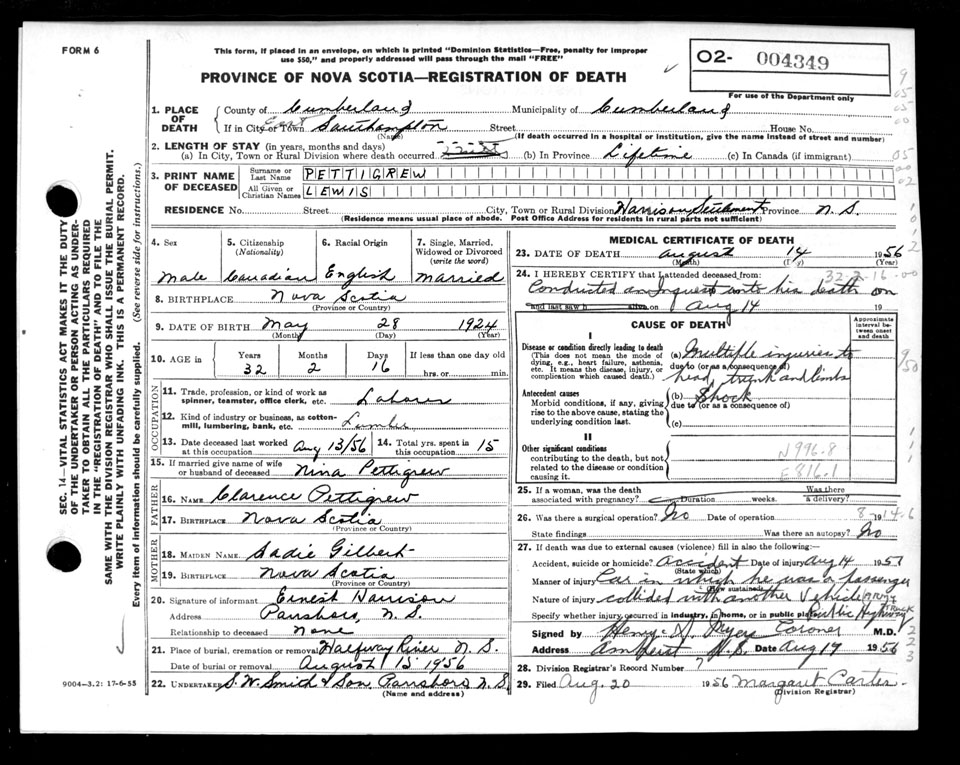 FORM 6
This form, if placed in an envelope, on which is printed "Dominion Statistics—Free, penalty for improper
use $50," and properly addressed will pass through the mail "FREE"
02- 004349
For use of the Department only
PROVINCE OF NOVA SCOTIA—REGISTRATION OF DEATH
SEC. 14—VITAL STATISTICS ACT MAKES IT THE DUTY
OF THE UNDERTAKER OR PERSON ACTING AS UNDER-
TAKER TO OBTAIN ALL THE PARTICULARS REQUIRED
IN THE "REGISTRATION OF DEATH" AND TO FILE THE
SAME WITH THE DIVISION REGISTRAR WHO SHALL ISSUE THE BURIAL PERMIT.
WRITE PLAINLY WITH UNFADING INK. THIS IS A PERMANENT RECORD.
Every item of information should be carefully supplied. (See reverse side for instructions.)
1. PLACE OF DEATH
County of Cumberland Municipality of Cumberland
If in City or Town East Southampton Street House No.
(Name) (If death occurred in a hospital or institution, give the name instead of street and number)
2. LENGTH OF STAY (in years, months and days)
(a) In City, Town or Rural Division where death occurred (b) In Province Lifetime (c) In Canada (if immigrant)
3. PRINT NAME OF DECEASED
Surname or Last Name PETTIGREW
All Given or Christian Names LEWIS
RESIDENCE No. Street City, Town or Rural Division Harrison Settlement Province N.S.
(Residence means usual place of abode. Post Office Address for residents in rural parts not sufficient)
4. Sex Male
5. Citizenship (Nationality) Canadian
6. Racial Origin English
7. Single, Married, Widowed or Divorced (write the word) Married
8. BIRTHPLACE Nova Scotia
(Province or Country)
9. DATE OF BIRTH May 28 1924
(Month) (Day) (Year)
10. AGE in Years 32 Months 2 Days 16 If less than one day old hrs. or min.
OCCUPATION
11. Trade, profession, or kind of work as spinner, teamster, office clerk, etc. Laborer
12. Kind of industry or business, as cotton-mill, lumbering, bank, etc. Lumber
13. Date deceased last worked at this occupation Aug 13/56
14. Total yrs. spent in this occupation 15
15. If married give name of wife or husband of deceased Nina Pettigrew
FATHER
16. NAME Clarence Pettigrew
17. BIRTHPLACE Nova Scotia
(Province or Country)
MOTHER
18. MAIDEN NAME Sadie Gilbert
19. BIRTHPLACE Nova Scotia
(Province or Country)
20. Signature of informant Ernest Harrison
Address Parrsboro, N.S.
Relationship to deceased None
21. Place of burial, cremation or removal Halfway River N.S.
Date of burial or removal August 15 1956
22. UNDERTAKER S.W. Smith & Son, Parrsboro, N.S.
(Name and address)
9004-3.2: 17-6-55
MEDICAL CERTIFICATE OF DEATH
23. DATE OF DEATH August 14 1956
(Month) (Day) (Year)
24. I HEREBY CERTIFY that I attended deceased from: 32-2-16-00
Conducted an Inquest into his death on
and last saw h alive on Aug 14 19
CAUSE OF DEATH
Approximate interval between onset and death
I
Disease or condition directly leading to death
(This does not mean the mode of dying, e.g., heart failure, asthenia, etc. It means the disease, injury, or complication which caused death.)
(a) Multiple injuries to
due to (or as a consequence of)
head, trunk and limbs
Antecedent causes
Morbid conditions, if any, giving rise to the above cause, stating the underlying condition last.
(b) Shock
due to (or as a consequence of)
(c)
II
Other significant conditions
contributing to the death, but not related to the disease or condition causing it.
N996.8
E816.1
25. If a woman, was the death associated with pregnancy? Duration weeks. Was there a delivery?
26. Was there a surgical operation? No Date of operation 19
State findings Was there an autopsy? No
27. If death was due to external causes (violence) fill in also the following:—
Accident, suicide or homicide? Accident Date of injury Aug 14 195
(State which)
Manner of injury Car in which he was a passenger
(How sustained)
Nature of injury collided with another vehicle
Specify whether injury occurred in industry, in home, or in public place Public Highway
TRUCK
Signed by Coroner M.D.
Address Amherst N.S. Date Aug 17 1956
28. Division Registrar's Record Number 7
29. Filed Aug. 20 1956 Margaret Carter
(Division Registrar)